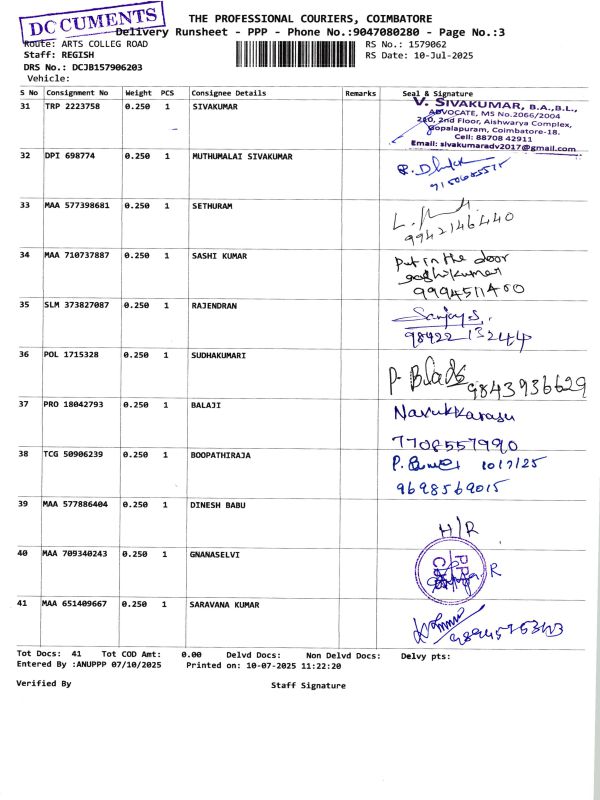 DOCUMENTS
THE PROFESSIONAL COURIERS, COIMBATORE
Delivery Runsheet - PPP - Phone No.:9047080280 - Page No.:3
Route: ARTS COLLEG ROAD
RS No.: 1579062
Staff: REGISH
RS Date: 10-Jul-2025
DRS No.: DCJB157906203
Vehicle:
S No Consignment No Weight PCS Consignee Details Remarks Seal & Signature
31 TRP 2223758 0.250 1 SIVAKUMAR
V. SIVAKUMAR, B.A.,B.L.,
ADVOCATE, MS No.2066/2004
2nd Floor, Aishwarya Complex,
Gopalapuram, Coimbatore-18.
Cell: 88708 42911
Email: sivakumaradv2017@gmail.com
32 DPI 698774 0.250 1 MUTHUMALAI SIVAKUMAR
33 MAA 577398681 0.250 1 SETHURAM
9942146440
34 MAA 710737887 0.250 1 SASHI KUMAR
Put in the door
sashikumar
9994511400
35 SLM 373827087 0.250 1 RAJENDRAN
Sanjay S.
98422 13244
36 POL 1715328 0.250 1 SUDHAKUMARI
9843936629
37 PRO 18042793 0.250 1 BALAJI
Navukkarasu
7708557990
38 TCG 50906239 0.250 1 BOOPATHIRAJA
10/7/25
9698569015
39 MAA 577886404 0.250 1 DINESH BABU
H/R
40 MAA 709340243 0.250 1 GNANASELVI
R
41 MAA 651409667 0.250 1 SARAVANA KUMAR
Tot Docs: 41 Tot COD Amt: 0.00 Delvd Docs: Non Delvd Docs: Delvy pts:
Entered By :ANUPPP 07/10/2025 Printed on: 10-07-2025 11:22:20
Verified By Staff Signature